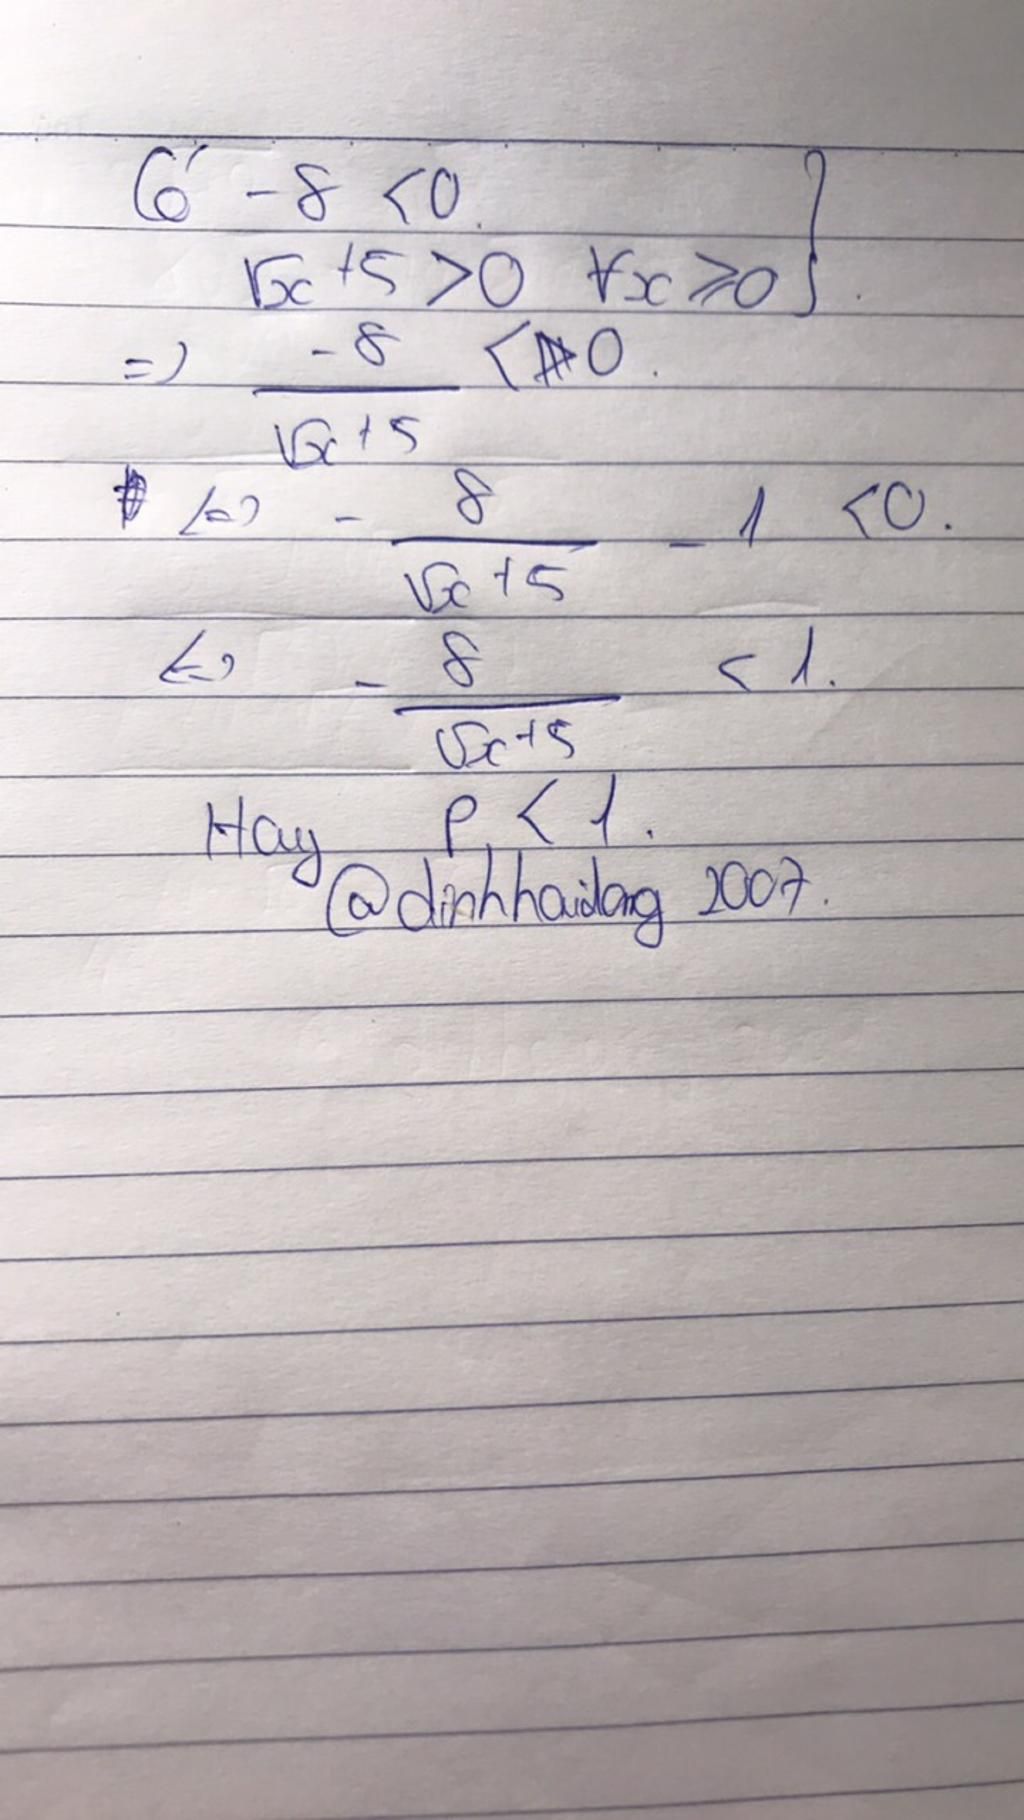 Có -8 <0.
√x +5 >0 ∀x ≥0 }.
=> -8/(√x +5) < 0.
<=> - 8/(√x +5) - 1 <0.
<=> - 8/(√x +5) < 1.
Hay P < 1.
@dinhhaidang 2007.